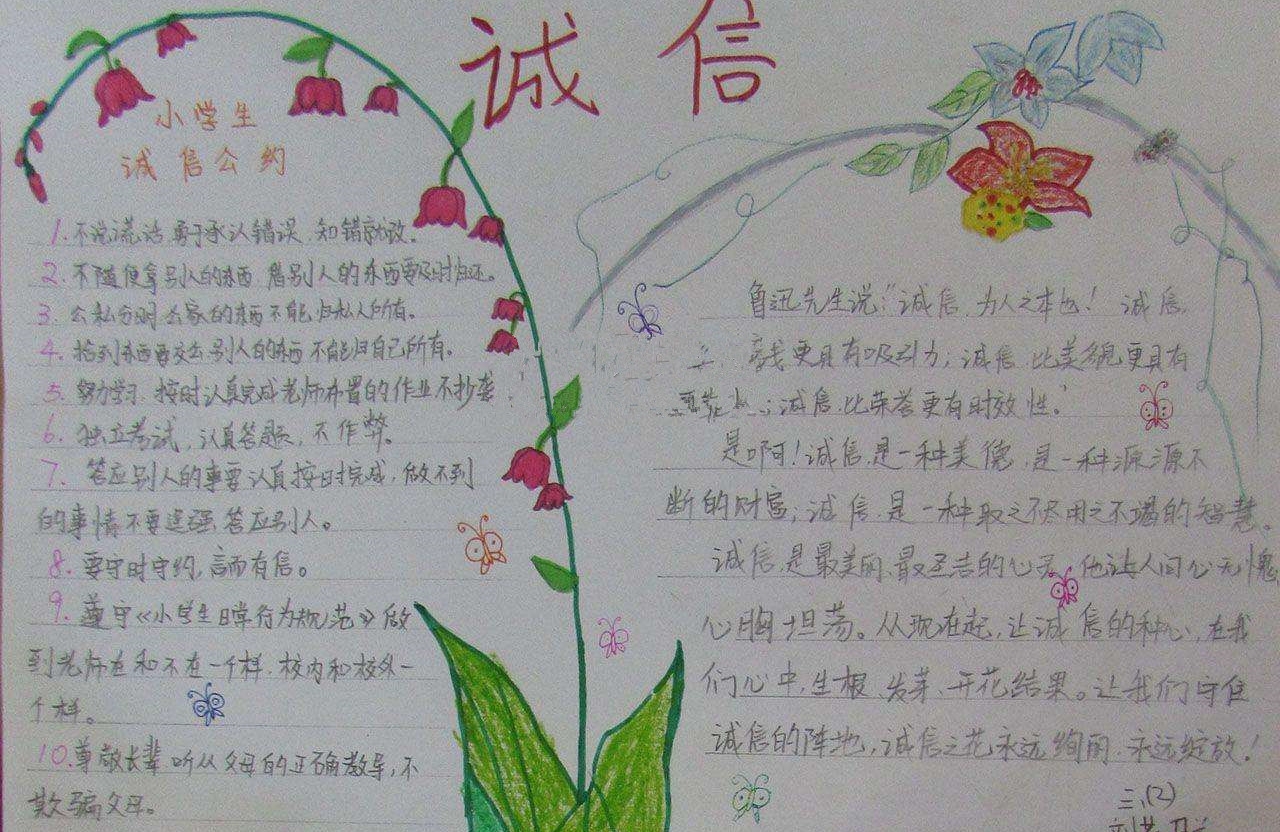 诚信
小学生
诚信公约
1.不说谎话,勇于承认错误,知错就改。
2.不随便拿别人的东西,借别人的东西要及时归还。
3.公私分明公家的东西不能归私人所有。
4.拾到东西要交公别人的东西不能归自己所有。
5.努力学习,按时认真完成老师布置的作业不抄袭。
6.独立考试,认真答题,不作弊。
7.答应别人的事要认真按时完成,做不到
的事情不要逞强答应别人。
8.要守时守约,言而有信。
9.遵守《小学生日常行为规范》做
到老师在和不在一个样,校内和校外一
个样。
10.尊敬长辈听从父母的正确教导,不
欺骗父母。
鲁迅先生说:“诚信,为人之本也!诚信,
比金钱更具有吸引力;诚信,比美貌更具有
;诚信,比荣誉更有时效性。”
是啊!诚信,是一种美德,是一种源源不
断的财富;诚信,是一种取之不尽用之不竭的智慧。
诚信,是最美丽、最圣洁的心灵,他让人问心无愧,
心胸坦荡。从现在起,让诚信的种心,在我
们心中,生根、发芽、开花结果。让我们守住
诚信的阵地,诚信之花永远绚丽,永远绽放!
三、(2)